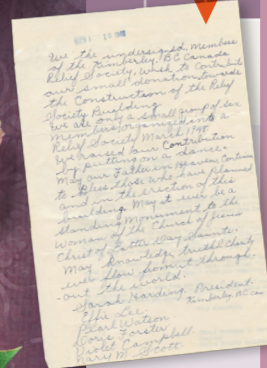 We the undersigned Members
of the Kimberley, BC Canada
Relief Society, Wish to Contribute
our small donation towards
the Construction of the Relief
Society Building
We are only a small group of six
Members, organized a
Relief Society March 1948.
We raised our Contribution
by putting on a dance.
May our Father in Heaven, Continue
to Bless those who have planned
and in the erection of this
building. May it ever be a
Standing Monument to the
Woman of the Church of Jesus
Christ of Latter Day Saints.
May knowledge, truth & Charity
ever flow from it through-
out the world.
Sarah Harding, President.
Kimberley, BC Can
Effie Lee.
Pearl Watson
Doris Forster
Violet Campbell.
Mary M. Scott.